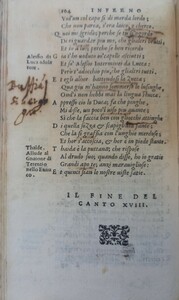 104 INFERNO
Vid'un col capo sì di merda lordo;
Che non parea, s'era laico, o cherco.
Quei mi sgridò: perche se' tu si ingordo
Di riguardar più me, che gli altri brutti?
Et io à lui: perche se ben ricordo
Già t'ho veduto coi capelli asciutti;
Et se' Alessio Interminei da Lucca:
Però t'adocchio più che gli altri tutti.
Et egli allhor battendosi la zucca:
Qua giù m'hanno sommerso le lusinghe,
Ond'io non hebbi mai la lingua stucca.
Appresso ciò lo Duca: fa che pinghe
Mi disse un poco 'l viso più avante
Si che la faccia ben con gli occhi attinghe
Di quella sozza scapigliata fante,
Che là si graffia con l'unghie merdose,
Et hor s'accoscia, et hor è in piedi stante.
Thaida è la puttana; che rispose
Al drudo suo; quando disse, ho io gratie
Grandi apo te? anzi maravigliose:
E quinci sien le nostre viste satie.
IL FINE DEL
CANTO XVIII.
Alessio
Thaide,
Allude al
Terentio